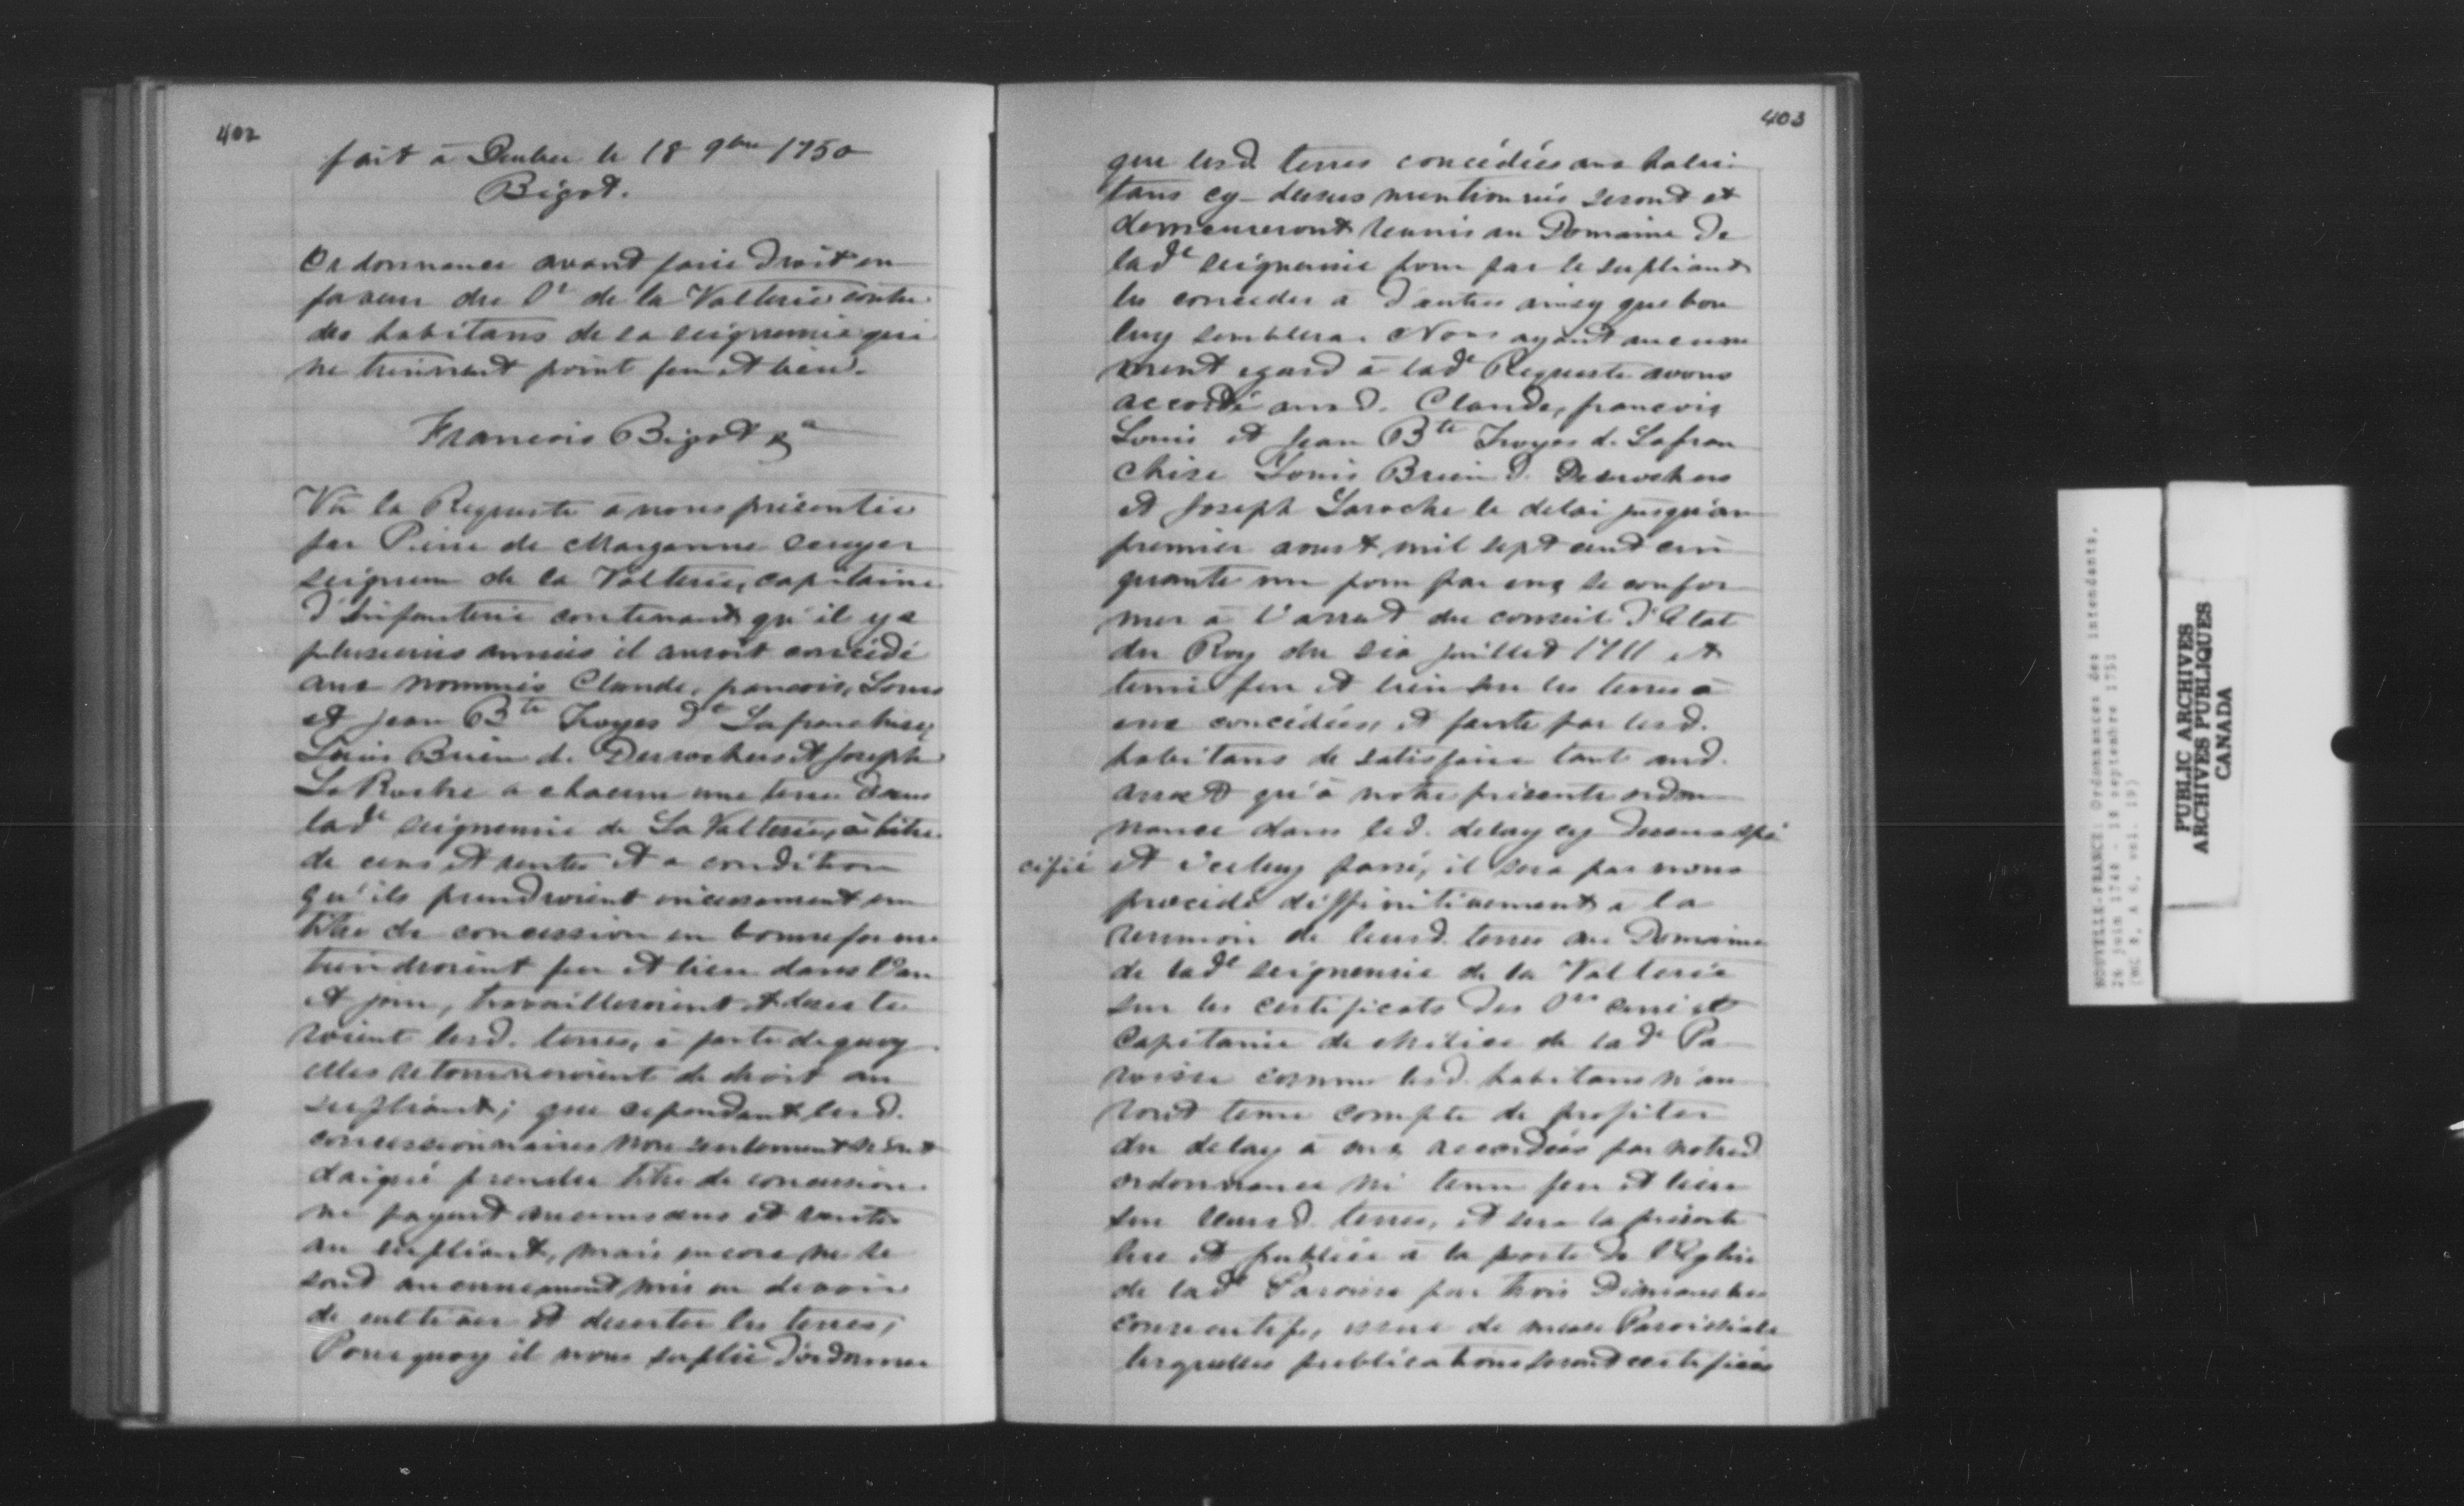 402
fait à Quebec le 18 9bre 1750
Bigot.
Ordonnance avant faire droit en
faveur du Sr de la Valterie contre
des habitans de sa seigneurie qui
ne tiennent point feu et lieu.
Francois Bigot &a
Vû la Requeste à nous présentée
par Pierre de Marganne Ecuyer
seigneur de la Valterie, capitaine
d'Infanterie contenant qu'il y a
plusieurs années il auroit concédé
aux nommés Claude, francois, Louis
et Jean Bte Troyes dt Lafranchise,
Louis Brien d. Desrochers et Joseph
La Roche a chacun une terre dans
lade seigneurie de La Valterie, à titre
de cens et rentes et a condition
qu'ils prendroient incessament un
titre de concession en bonne forme
tiendroient feu et lieu dans l'an
et jour, travailleroient et deserte
roient lesd. terres, à faute de quoy
elles retourneroient de droit au
supliant; que cependant lesd.
concessionnaires non seulement n'ont
daigné prendre titre de concession
ni payent aucuns cens et rentes
au supliant, mais encore ne se
sont aucunement mis en devoir
de cultiver et deserter les terres;
Pourquoy il nous suplie d'ordonner
403
que lesd. terres concédées aux habi-
tans cy-dessus mentionnés seront et
demeureront reunis au Domaine de
lade seigneurie pour par le supliant
les conceder a d'autres ainsy que bon
luy semblera. Nous ayant aucune
ment egard à lade Requeste avons
accordé ausd. Claude, francois
Louis et Jean Bte Troyes d. Lafran
chise Louis Brien d. Desrochers
et Joseph Laroche le delai jusqu'au
premier aoust mil sept cent cin
quante un pour par eux se confor
mer à l'arrest du conseil d'Etat
du Roy du six juillet 1711 et
tenir feu et lieu sur les terres à
eux concédées, et faute par lesd.
habitans de satisfaire tant aud.
arrest qu'à notre présente ordon
nance dans led. delay cy dessus spé
cifié et iceluy passé, il sera par nous
procédé diffinitivement a la
reunion de leursd. terres au Domaine
de lade seigneurie de la Valterie
sur les certificats des Srs curé et
Capitaine de Milice de lade Pa
roisse comme lesd. habitans n'au
ront tenu compte de profiter
du delay à eux accordés par notred
ordonnance ni tenu feu et lieu
sur leursd. terres, et sera la présente
lue et publiée à la porte de l'Eglise
de lade Paroisse par trois Dimanches
consecutifs, issue de messe Paroissiale
lesquelles publications seront certifiées
NOUVELLE-FRANCE: Ordonnances des intendants.
26 juin 1748 - 10 septembre 1751
(MG 8, A 6, vol. 19)
PUBLIC ARCHIVES
ARCHIVES PUBLIQUES
CANADA